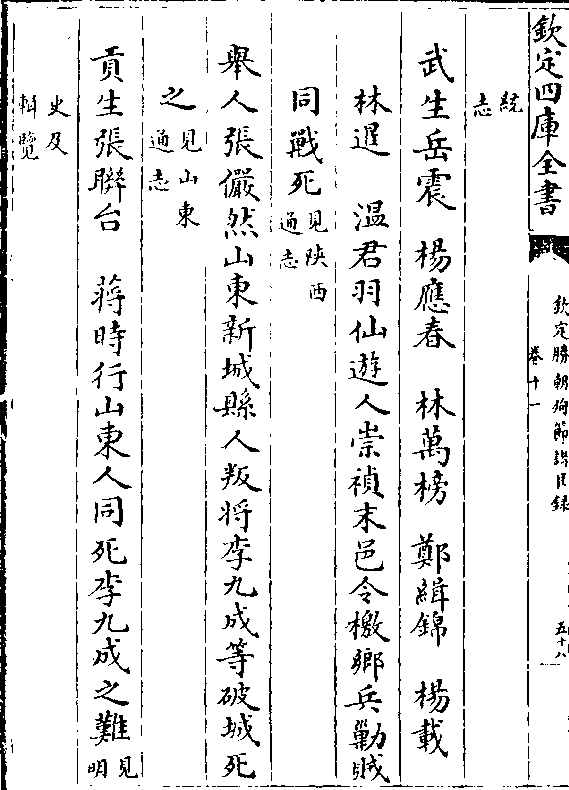 欽定四庫全書
欽定勝朝殉節諸臣錄
卷十一
五十八
統
志
武生岳震　楊應春　林萬榜　鄭緝錦　楊載
林遲　溫君羽仙遊人崇禎末邑令檄鄉兵勦賊
同戰死見陜西
通志
舉人張儼然山東新城縣人叛将李九成等破城死
之見山東
通志
貢生張聯台　蔣時行山東人同死李九成之難見
明
史及
輯覽